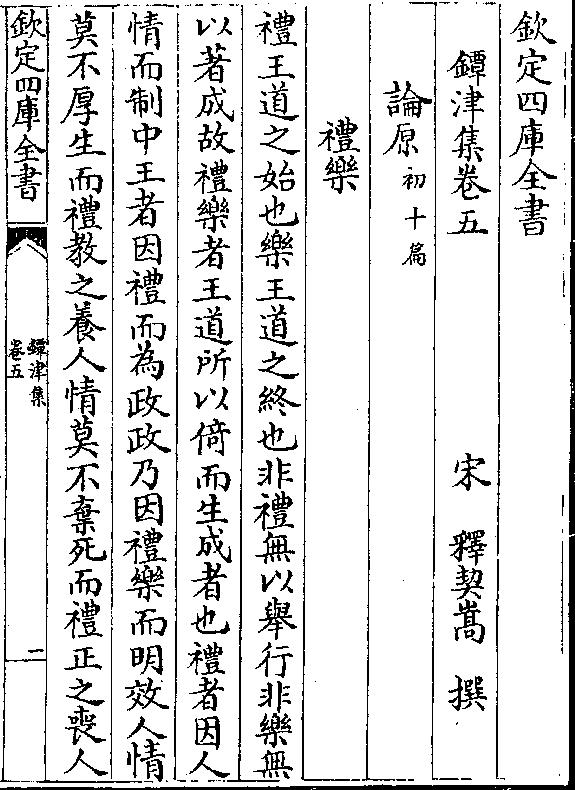 欽定四庫全書
鐔津集卷五 宋 釋契嵩 撰
論原初十篇
禮樂
禮王道之始也樂王道之終也非禮無以舉行非樂無
以著成故禮樂者王道所以倚而生成者也禮者因人
情而制中王者因禮而為政政乃因禮樂而明效人情
莫不厚生而禮教之養人情莫不棄死而禮正之喪人
欽定四庫全書
鐔津集
卷五
二